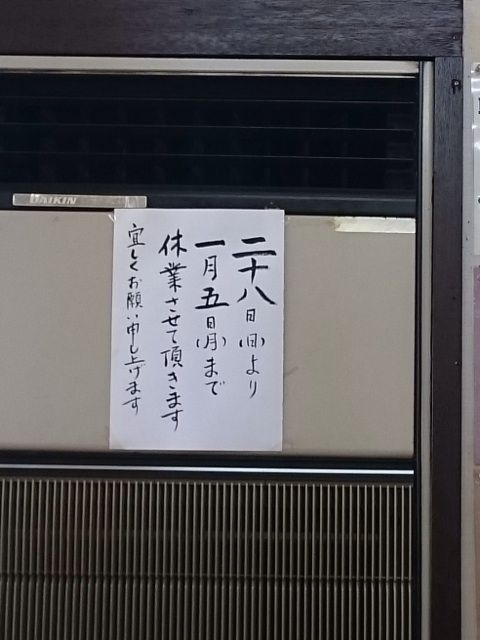 DAIKIN
二十八日(日)より
一月五日(月)まで
休業させて頂きます
宜しくお願い申し上げます